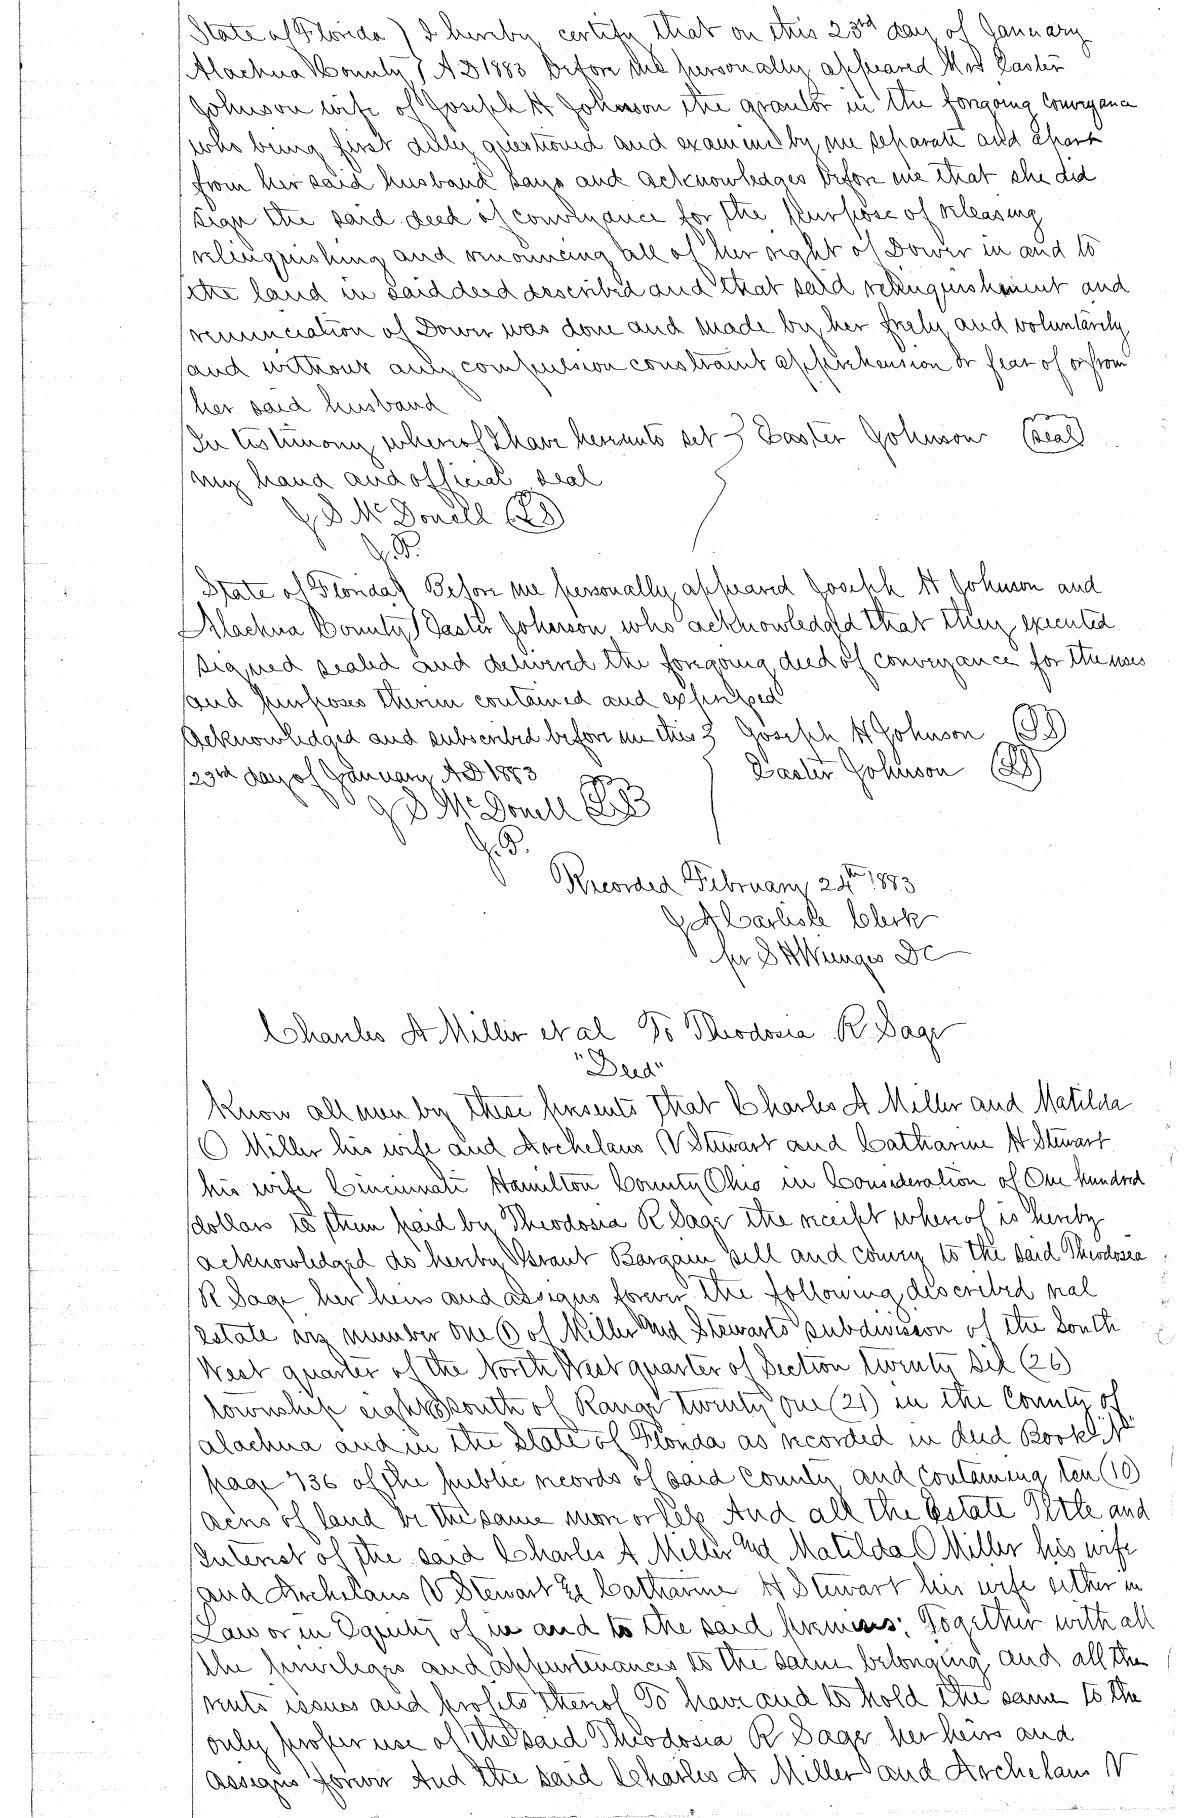 State of Florida ) I hereby certify that on this 23rd day of January
Alachua County ) AD 1883 before me personally appeared Mrs Easter
Johnson wife of Joseph H Johnson the grantor in the forgoing conveyance
who being first duly questioned and examined by me separate and apart
from her said husband says and acknowledges before me that she did
sign the said deed of conveyance for the purpose of releasing
relinquishing and renouncing all of her right of Dower in and to
the land in said deed described and that said relinquishment and
renunciation of Dower was done and made by her freely and voluntarily
and without any compulsion constraint apprehension or fear of or from
her said husband
In testimony whereof I have hereunto set } Easter Johnson (seal)
my hand and official seal
J S McDonell (LS)
J.P.
State of Florida ) Before me personally appeared Joseph H Johnson and
Alachua County ) Easter Johnson who acknowledged that they executed
signed sealed and delivered the foregoing deed of conveyance for the uses
and purposes therein contained and expressed
Acknowledged and subscribed before me this } Joseph H Johnson (LS)
23rd day of January AD 1883 Easter Johnson (LS)
J S McDonell (LS)
J.P.
Recorded February 24th 1883
J A Carlisle Clerk
per S H Wienges DC
Charles A Miller et al To Theodosia R Sage
"Deed"
Know all men by these presents that Charles A Miller and Matilda
O Miller his wife and Archelaus V Stewart and Catharine H Stewart
his wife Cincinnati Hamilton County Ohio in Consideration of One hundred
dollars to them paid by Theodosia R Sage the receipt whereof is hereby
acknowledged do hereby Grant Bargain sell and convey to the said Theodosia
R Sage her heirs and assigns forever the following described real
Estate viz number one (1) of Miller and Stewarts subdivision of the South
West quarter of the North West quarter of Section twenty six (26)
township eight (8) south of Range twenty one (21) in the County of
alachua and in the State of Florida as recorded in deed Book "N"
page 736 of the public records of said County and containing ten (10)
acres of land be the same more or less And all the Estate Title and
Interest of the said Charles A Miller and Matilda O Miller his wife
and Archelaus V Stewart & Catharine H Stewart his wife either in
Law or in Equity of in and to the said premises; Together with all
the privileges and appurtenances to the same belonging and all the
rents issues and profits thereof To have and to hold the same to the
only proper use of the said Theodosia R Sage her heirs and
assigns forever And the said Charles A Miller and Archelaus V